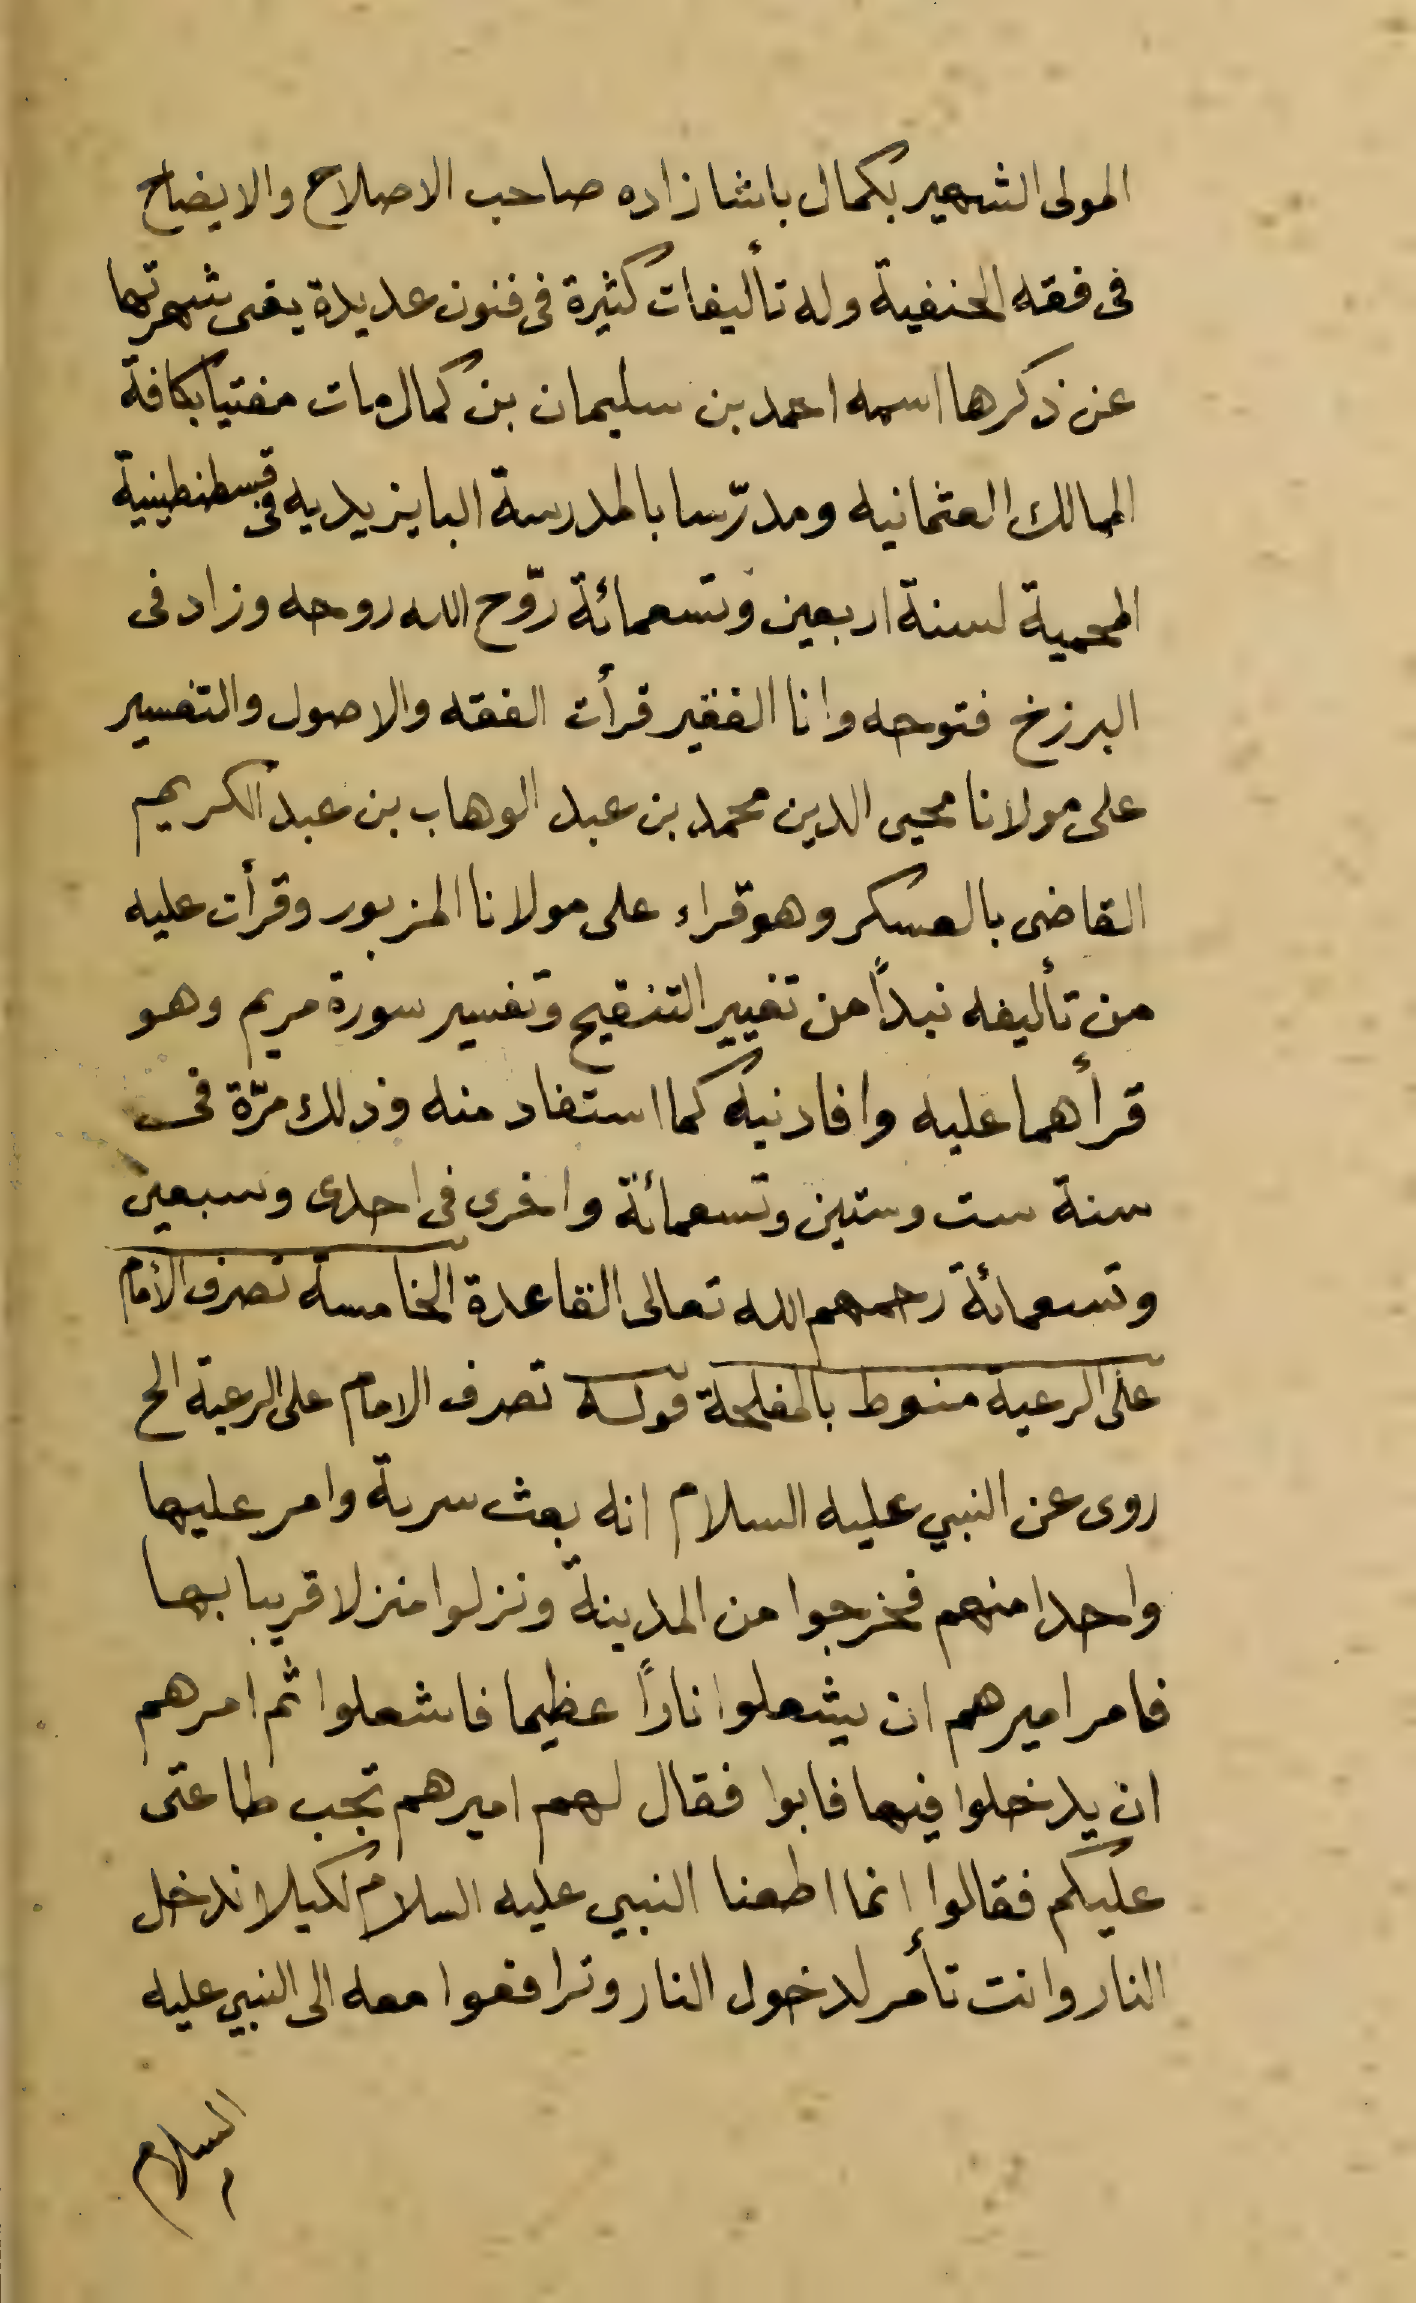 المولى الشهير بكمال باشا زاده صاحب الاصلاح والايضاح
فى فقه الحنفية وله تأليفات كثيرة فى فنون عديدة يغنى شهرتها
عن ذكرها اسمه احمد بن سليمان بن كمال مات مفتيا بكافة
الممالك العثمانيه ومدرّسا بالمدرسة البايزيديه فى قسطنطينية
المحمية لسنة اربعين وتسعمائة روّح الله روحه وزاد فى
البرزخ فتوحه وانا الفقير قرأت الفقه والاصول والتفسير
على مولانا محيى الدين محمد بن عبد الوهاب بن عبد الكريم
القاضى بالعسكر وهو قراء على مولانا المزبور وقرأت عليه
من تأليفه نبداً من تغيير التنقيح وتفسير سورة مريم وهو
قرأهما عليه وافادنيه كما استفاد منه وذلك مرّة فى
سنة ست وستين وتسعمائة واخرى فى احدى وسبعين
وتسعمائة رحمهم الله تعالى القاعدة الخامسة تصرف الأمام
على الرعية منوط بالمفلحة قوله تصرف الامام على الرعية الح
روى عن النبي عليه السلام انه بعث سرية وامر عليها
واحدا منهم فخرجوا من المدينة ونزلوا منزلا قريبا بها
فامر اميرهم ان يشعلوا ناراً عظيما فاشعلوا ثم امرهم
ان يدخلوا فيها فابوا فقال لهم اميرهم تجب طاعتى
عليكم فقالوا انما اطعنا النبي عليه السلام لكيلا ندخل
النار وانت تأمر لدخول النار وترافعوا معه الى النبي عليه
السلام